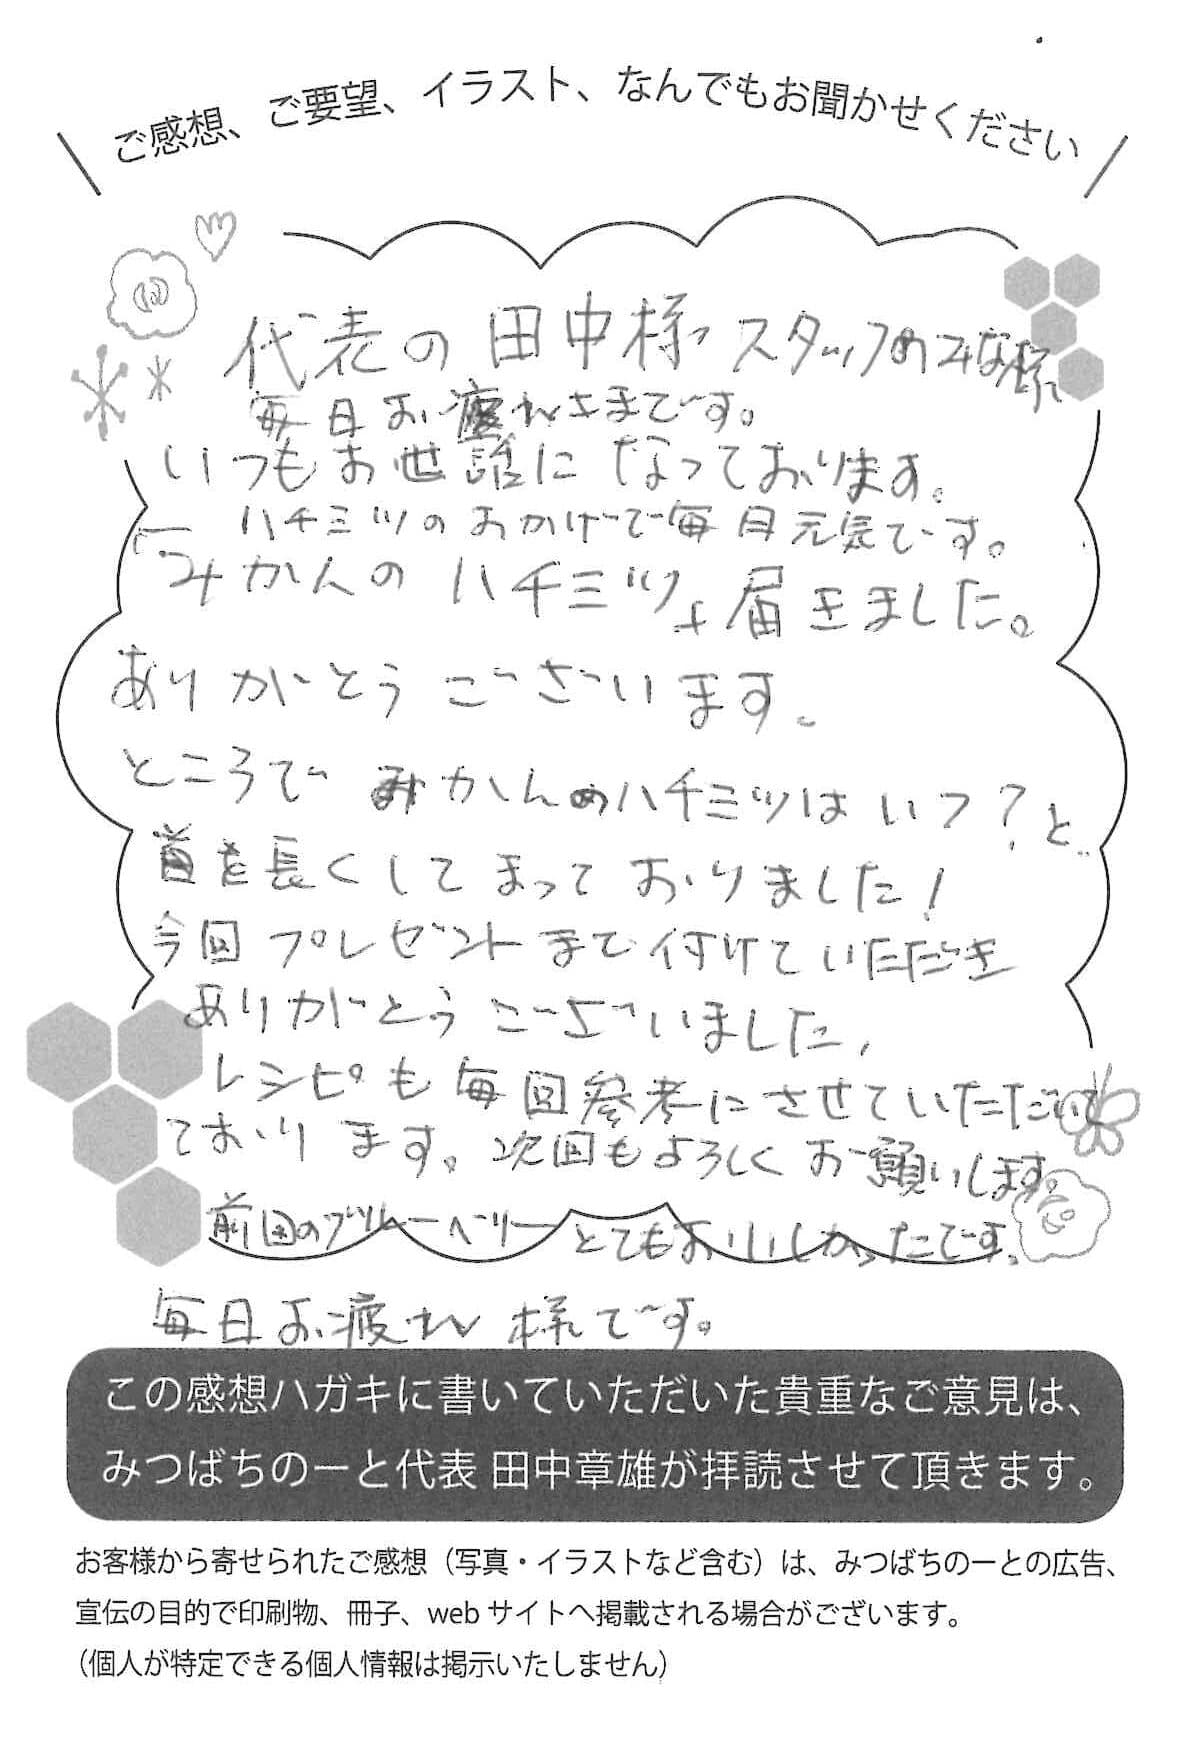 ご感想、ご要望、イラスト、なんでもお聞かせください
代表の田中様、スタッフのみな様、
毎日お疲れさまです。
いつもお世話になっております。
ハチミツのおかげで毎日元気です。
「みかんのハチミツ」届きました。
ありがとうございます。
ところでみかんのハチミツはいつ?と、
首を長くしてまっておりました!
今回プレゼントまで付けていただき
ありがとうございました。
レシピも毎回参考にさせていただいて
ております。次回もよろしくお願いします。
前回のブルーベリーとてもおいしかったです。
毎日お疲れ様です。
この感想ハガキに書いていただいた貴重なご意見は、
みつばちのーと代表 田中章雄が拝読させて頂きます。
お客様から寄せられたご感想（写真・イラストなど含む）は、みつばちのーとの広告、
宣伝の目的で印刷物、冊子、webサイトへ掲載される場合がございます。
（個人が特定できる個人情報は掲示いたしません）